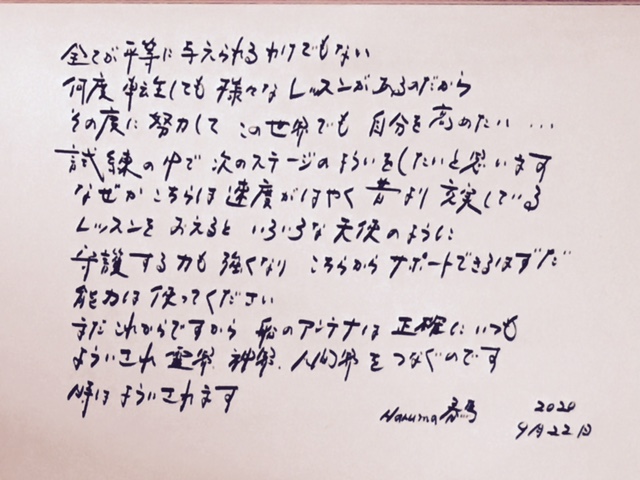 全てが平等に与えられるわけでもない
何度転生しても様々なレッスンがあるのだから
その度に努力して この世界でも 自分を高めたい ...
試練の中で次のステージのよういをしたいと思います
なぜか こちらは 速度がはやく 昔より 充実している
レッスンを おえると いろいろな 天使のように
守護する力も 強くなり こちらから サポートできるはずだ
能力は 使ってください
まだ これからですから 私のアンテナは 正確に いつも
よういされ 霊界、神界、人間界をつなぐのです
時は よういされます
Haruma 春馬 2020
9月22日